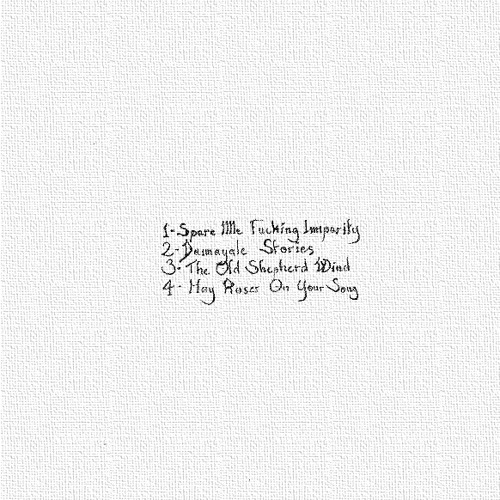 1- Spare Me Fucking Imparity
2- Damayale Stories
3- The Old Shepherd Wind
4- May Roses On Your Song